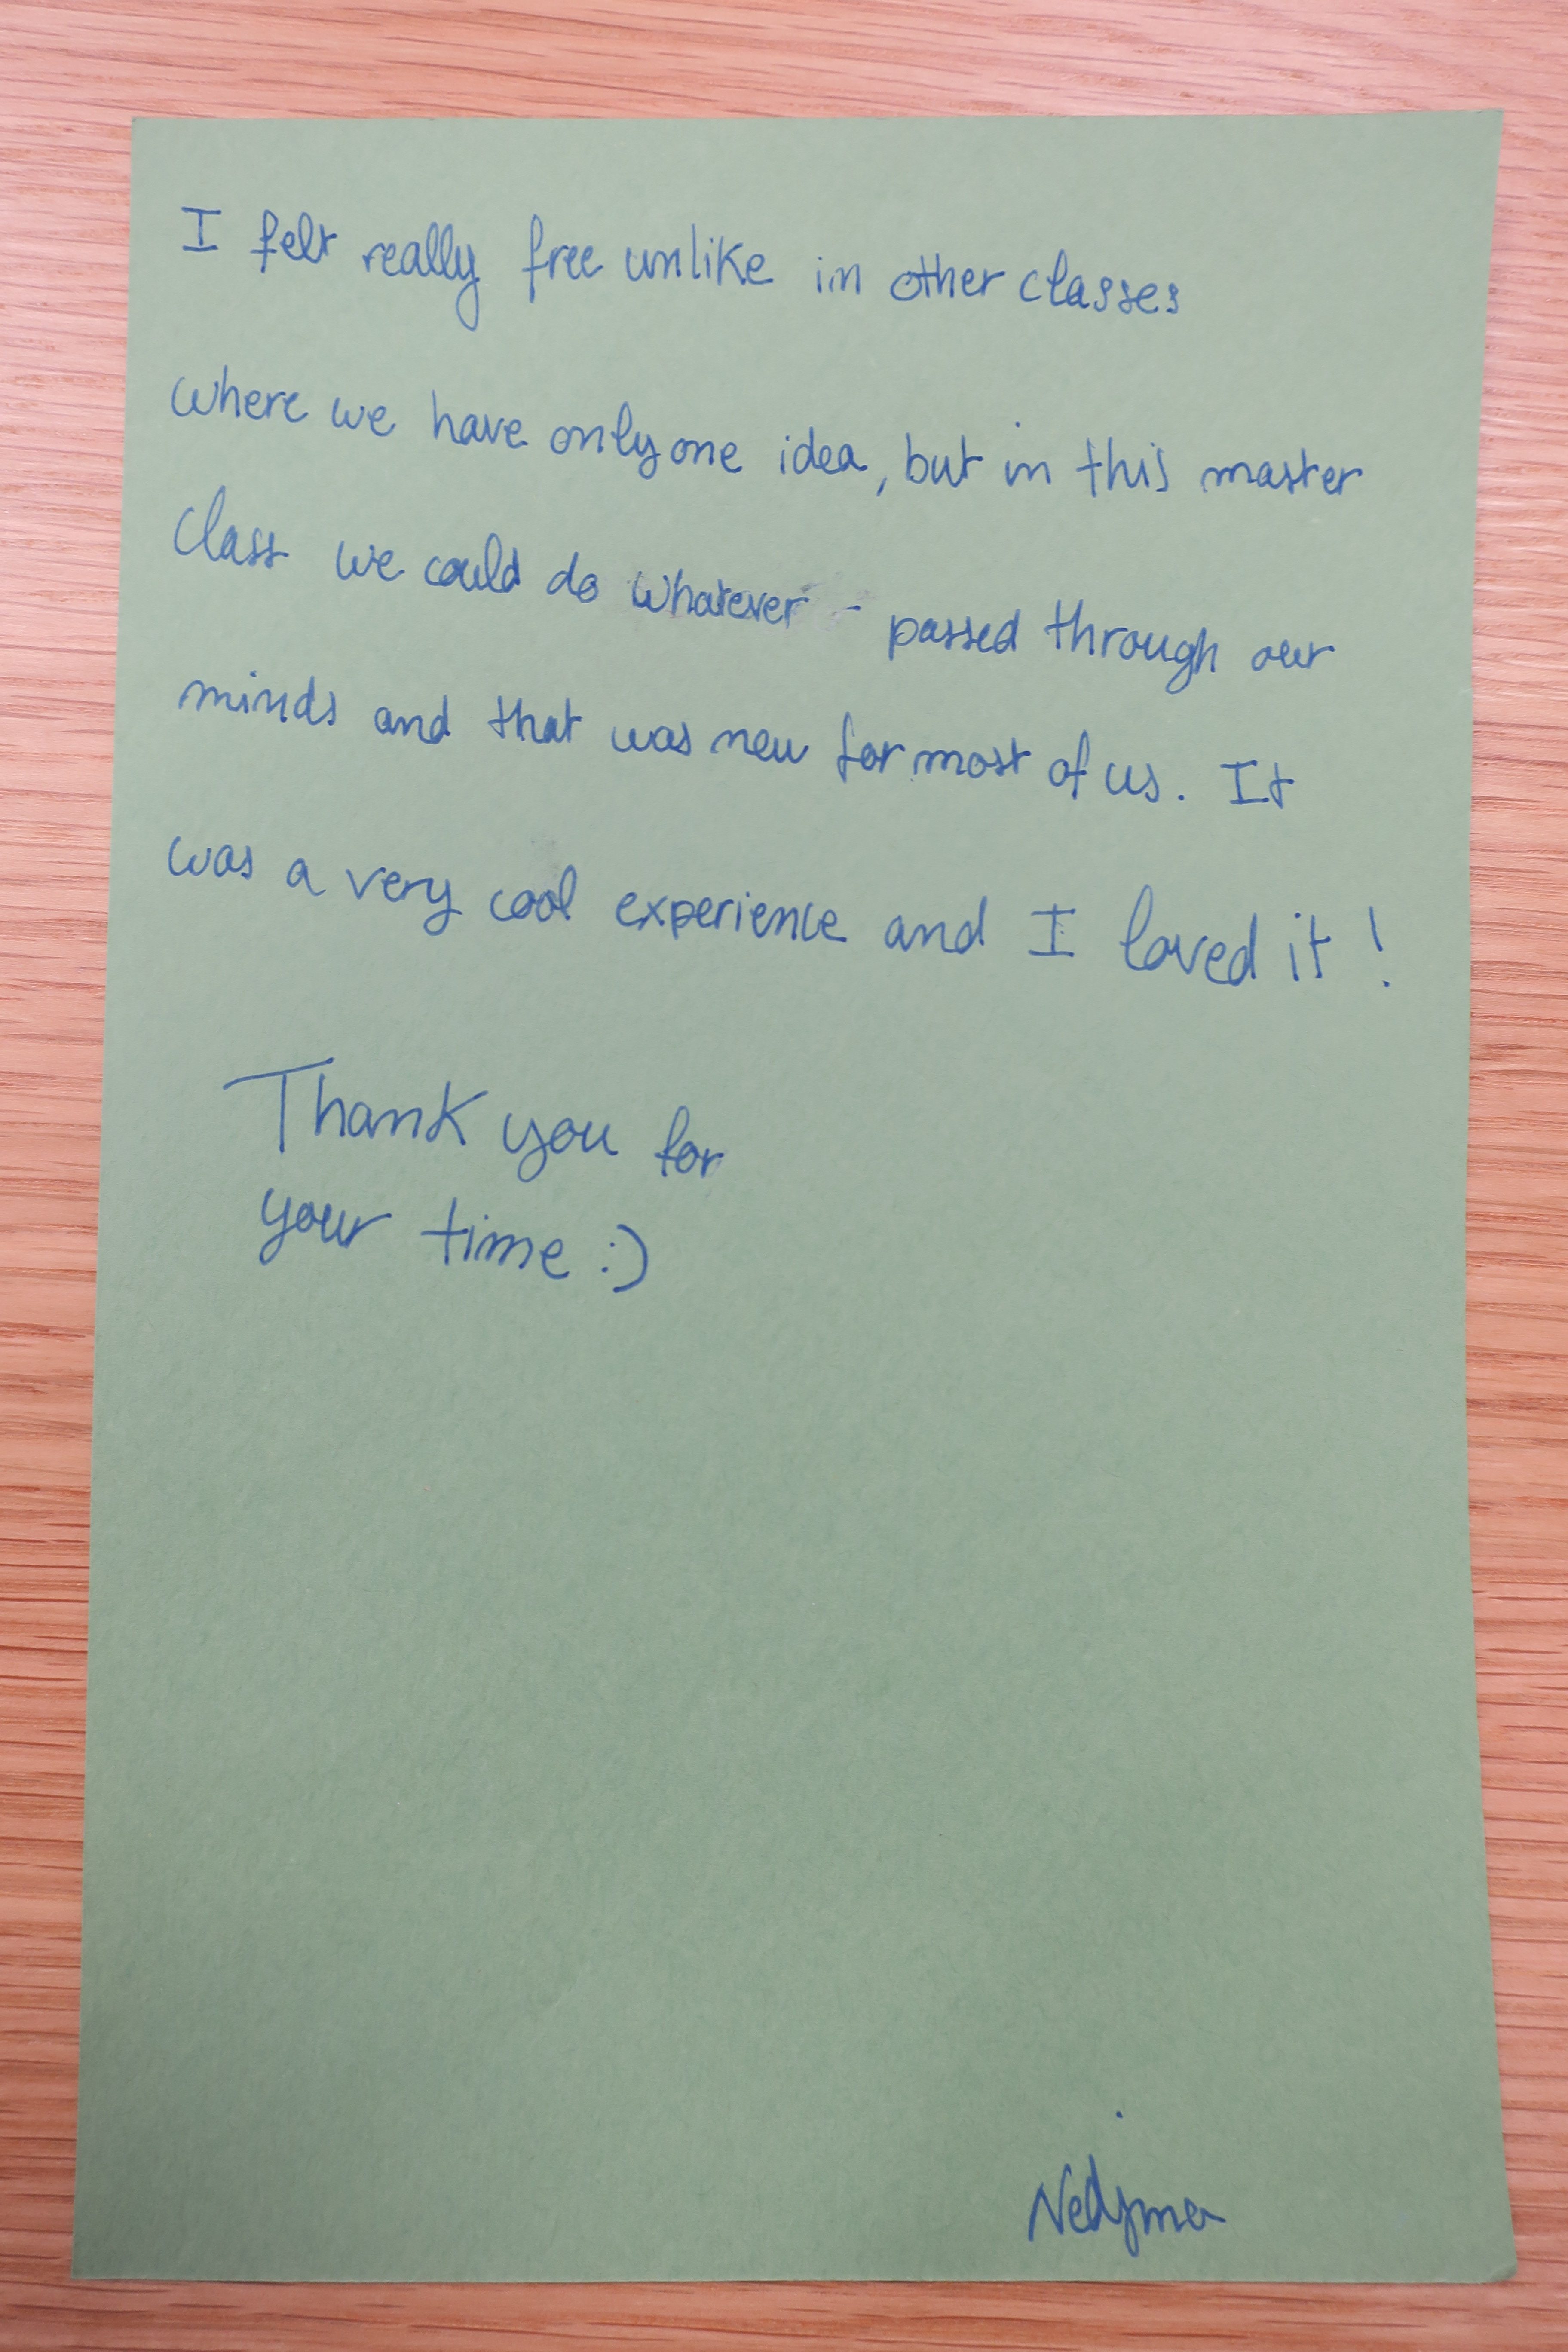 I felt really free unlike in other classes
where we have only one idea, but in this master
class we could do whatever - passed through our
minds and that was new for most of us. It
was a very cool experience and I loved it !
Thank you for
your time :)
Nedjma